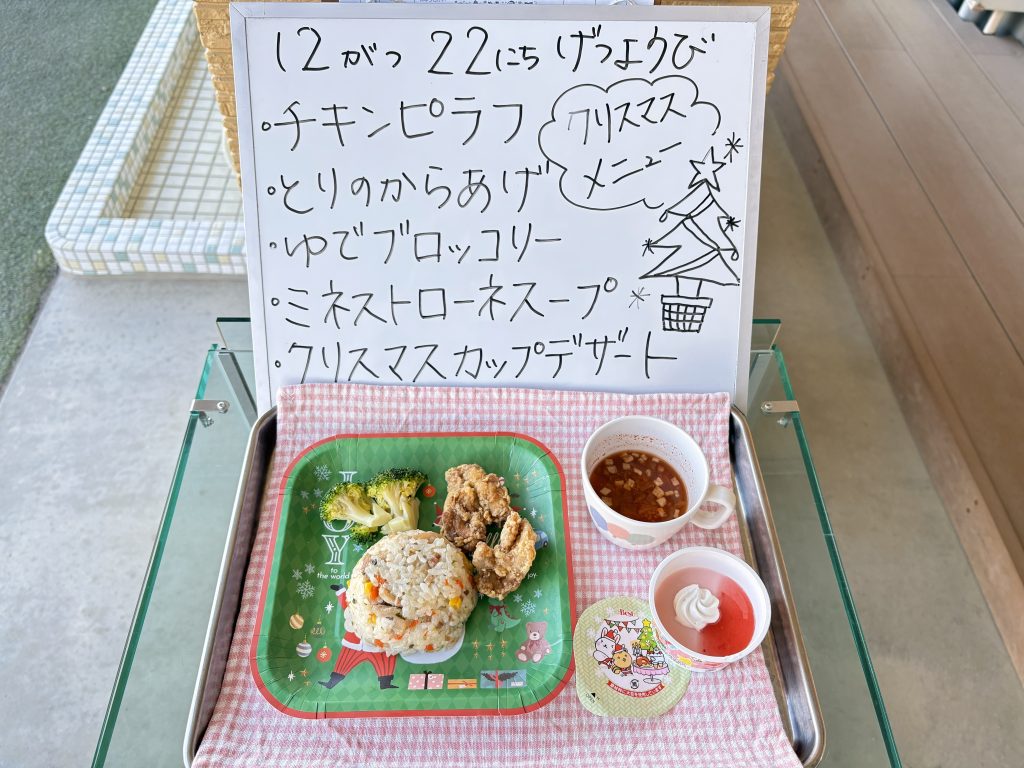 12がつ 22にち げつようび
クリスマス
メニュー
・チキンピラフ
・とりのからあげ
・ゆでブロッコリー
・ミネストローネスープ
・クリスマスカップデザート
to
the world
joy.
Best